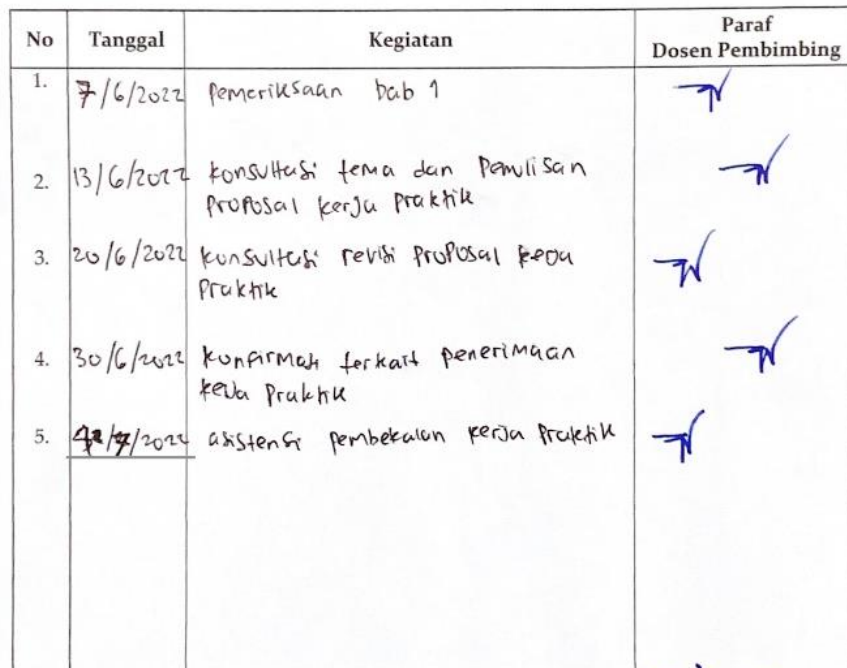 No Tanggal Kegiatan Paraf
Dosen Pembimbing
1. 7/6/2022 Pemeriksaan bab 1
2. 13/6/2022 konsultasi tema dan Penulisan
Proposal kerja Praktik
3. 20/6/2022 konsultasi revisi Proposal kerja
Praktik
4. 30/6/2022 konfirmasi terkait penerimaan
kerja Praktik
5. /7/2022 asistensi pembekalan kerja Praktik